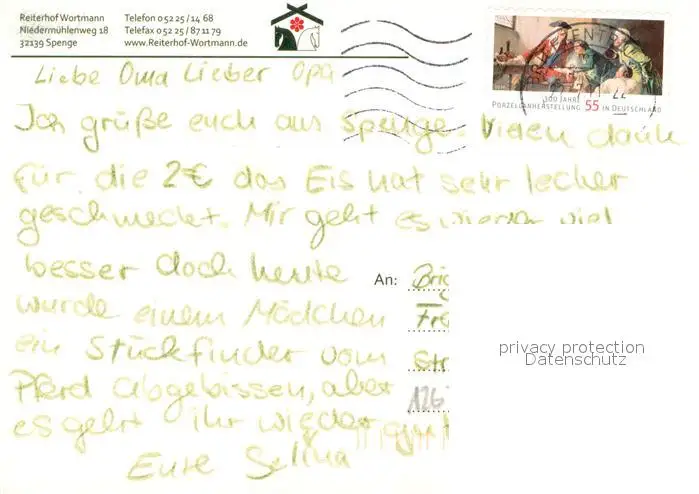 Reiterhof Wortmann
Niedermühlenweg 18
32139 Spenge
Telefon 0 52 25 / 14 68
Telefax 0 52 25 / 87 11 79
www.Reiterhof-Wortmann.de
300 JAHRE
PORZELLANHERSTELLUNG 55 IN DEUTSCHLAND
Liebe Oma Lieber Opa
Ich grüße euch aus Spenge. Vielen dank
für die 2€ das Eis hat sehr lecker
geschmeckt. Mir geht es wieder viel
besser doch heute
wurde einem Mädchen
ein Stück finder vom
Pferd abgebissen, aber
es geht ihr wieder gut!
Eure Selina
An: Brig
Str
126
privacy protection
Datenschutz